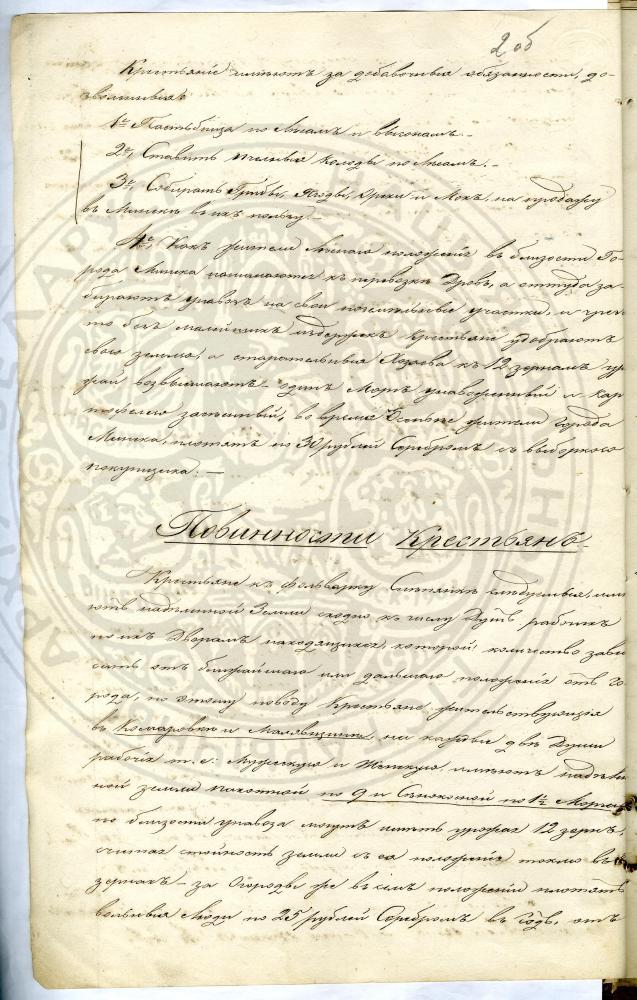 2 об
Крестьяне имеютъ за добавочныя обязанности, до-
зволенныя
1е Пастьбища по Лѣсамъ и выгонамъ.-
2е, Ставить пчельныя колоды по Лѣсамъ.-
3е, Собирать Грибы, Ягоды, Орѣхи и Мохъ, на продажу
въ Минскѣ въ ихъ пользу.-
4е, Какъ жители имѣнія положеніе въ близости Го-
рода Минска нанимаются къ перевозкѣ Дровъ, а оттуда за-
бираютъ унавозъ на свои поземельные участки, и чрезъ
то безъ малейшихъ издержекъ крестьяне удобряютъ
свою землю, а старательныя Хозяева къ 12 зернамъ уро-
жай возвышаютъ один Моргъ унавоженный и кар-
тофелемъ засеянный, во время Осени жители города
Минска, платятъ по 30 рублей Серебромъ съ выборкою
покупщика.-
Повинности Крестьянъ.
Крестьяне къ фольварку Слѣпянкѣ следуемыя, имѣ-
ютъ надѣленной Земли сходно къ числу Душъ рабочихъ
по ихъ Дворамъ находящихся, которой количество зави-
ситъ отъ ближайшаго или дальнаго положенія отъ го-
рода, по этому поводу Крестьяне жительствующія
въ Комаровкѣ и Малявщинѣ на каждые двѣ Души
рабочія т. е: Мужскую и Женскую, имѣютъ надѣлен-
ной земли пахотной по 9 и Сѣнокосной по 1½ Морга
по близости унавоза могутъ имѣть урожая 12 зеренъ,
считая стойность земли съ ея положенія токмо въ
зернахъ - за Огороды же въ семъ положеніи платятъ
вольныя Люди по 25 рублей Серебромъ въ годъ, отъ